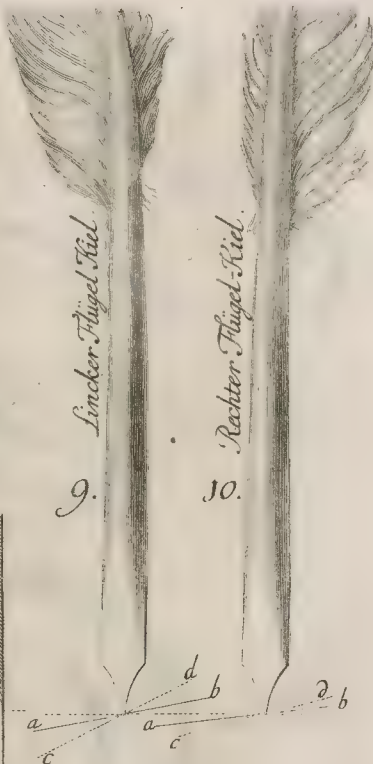 Lincker Flügel Kiel.
Rechter Flügel-Kiel.
9.
10.
d
b
a
c
a
c
d
b